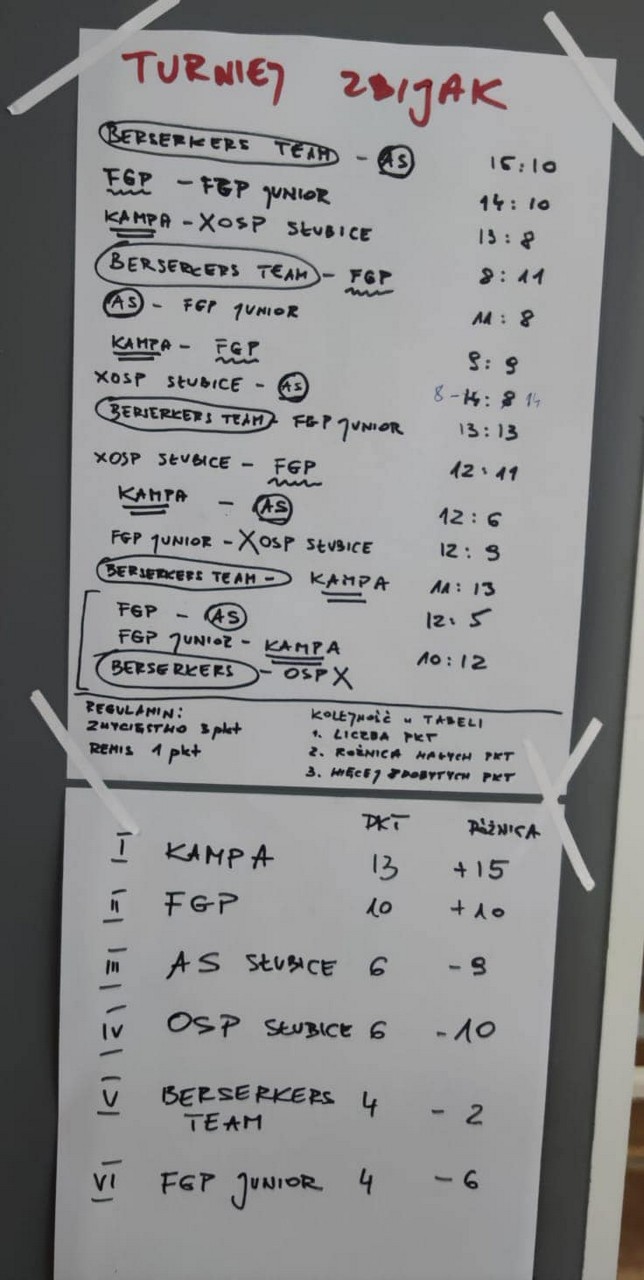 TURNIEJ ZBIJAK
BERSERKERS TEAM - AS 15:10
FGP - FGP JUNIOR 14:10
KAMPA - XOSP SŁUBICE 13:8
BERSERKERS TEAM - FGP 8:11
AS - FGP JUNIOR 11:8
KAMPA - FGP 9:9
XOSP SŁUBICE - AS 8-14: 8 14
BERSERKERS TEAM - FGP JUNIOR 13:13
XOSP SŁUBICE - FGP 12:11
KAMPA - AS 12:6
FGP JUNIOR - XOSP SŁUBICE 12:9
BERSERKERS TEAM - KAMPA 11:13
FGP - AS 12:5
FGP JUNIOR - KAMPA 10:12
BERSERKERS - OSP X
REGULAMIN:
ZWYCIĘSTWO 3 pkt
REMIS 1 pkt
KOLEJNOŚĆ W TABELI
1. LICZBA PKT
2. RÓŻNICA MAŁYCH PKT
3. WIĘCEJ ZDOBYTYCH PKT
PKT RÓŻNICA
I KAMPA 13 +15
II FGP 10 +10
III AS SŁUBICE 6 -9
IV OSP SŁUBICE 6 -10
V BERSERKERS TEAM 4 -2
VI FGP JUNIOR 4 -6